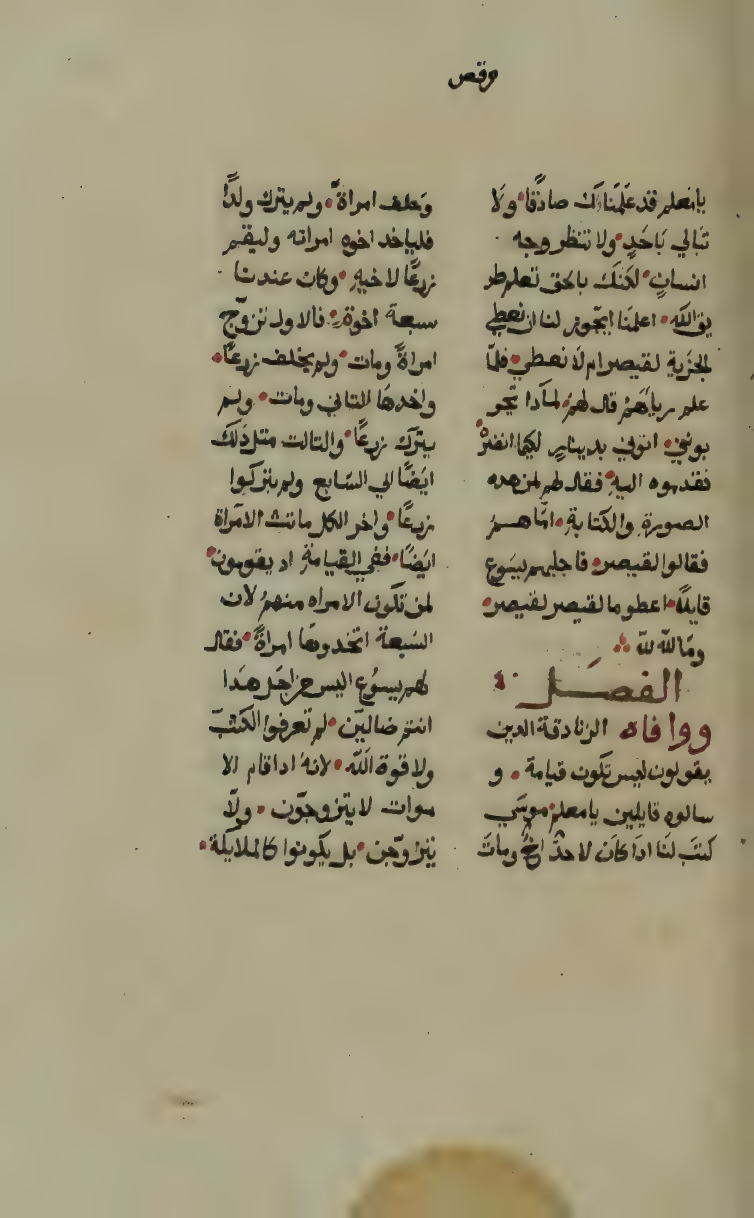 مرقص
يامعلم قد علمنا انك صادقًا ولا
تبالي باحدٍ ولا تنظر وجه
انسانٍ لكنك بالحق تعلم طر
يق الله اعلمنا ايجوز لنا ان نعطي
الجزية لقيصر ام لا نعطي فلما
علم رياهم قال لهم لمادا تجر
بوني اتوني بدينار لكيما انضر
فقدموه اليه فقال لهم لمن هده
الصورة والكتابة اما هم
فقالوا لقيصر فاجابهم يسوع
قايلاً اعطوا ما لقيصر لقيصر
وما لله لله
الفصل
ووافاه الزنادقة الدين
يقولون ليس تكون قيامة و
سالوه قايلين يامعلم موسي
كتب لنا اذا كان لاحد اخ ومات
وخلف امراةً ولم يترك ولدًا
فلياخد اخوه امراته وليقيم
زرعًا لاخيه وكان عندنا
سبعة اخوة فالاول تزوج
امراةً ومات ولم يخلف زرعًا
واخدها التاني ومات ولم
يترك زرعًا والتالت متل ذلك
ايضًا الي السابع ولم يتركوا
زرعًا واخر الكل ماتت الامراة
ايضًا ففي القيامة اد يقومون
لمن تكون الامراه منهم لان
السبعة اتخدوها امراةً فقال
لهم يسوع اليس من اجل هدا
انتم ضالين لم تعرفوا الكتب
ولا قوة الله لانه ادا قام الا
موات لا يتزوجون ولا
يتزوجن بل يكونوا كالملايكة